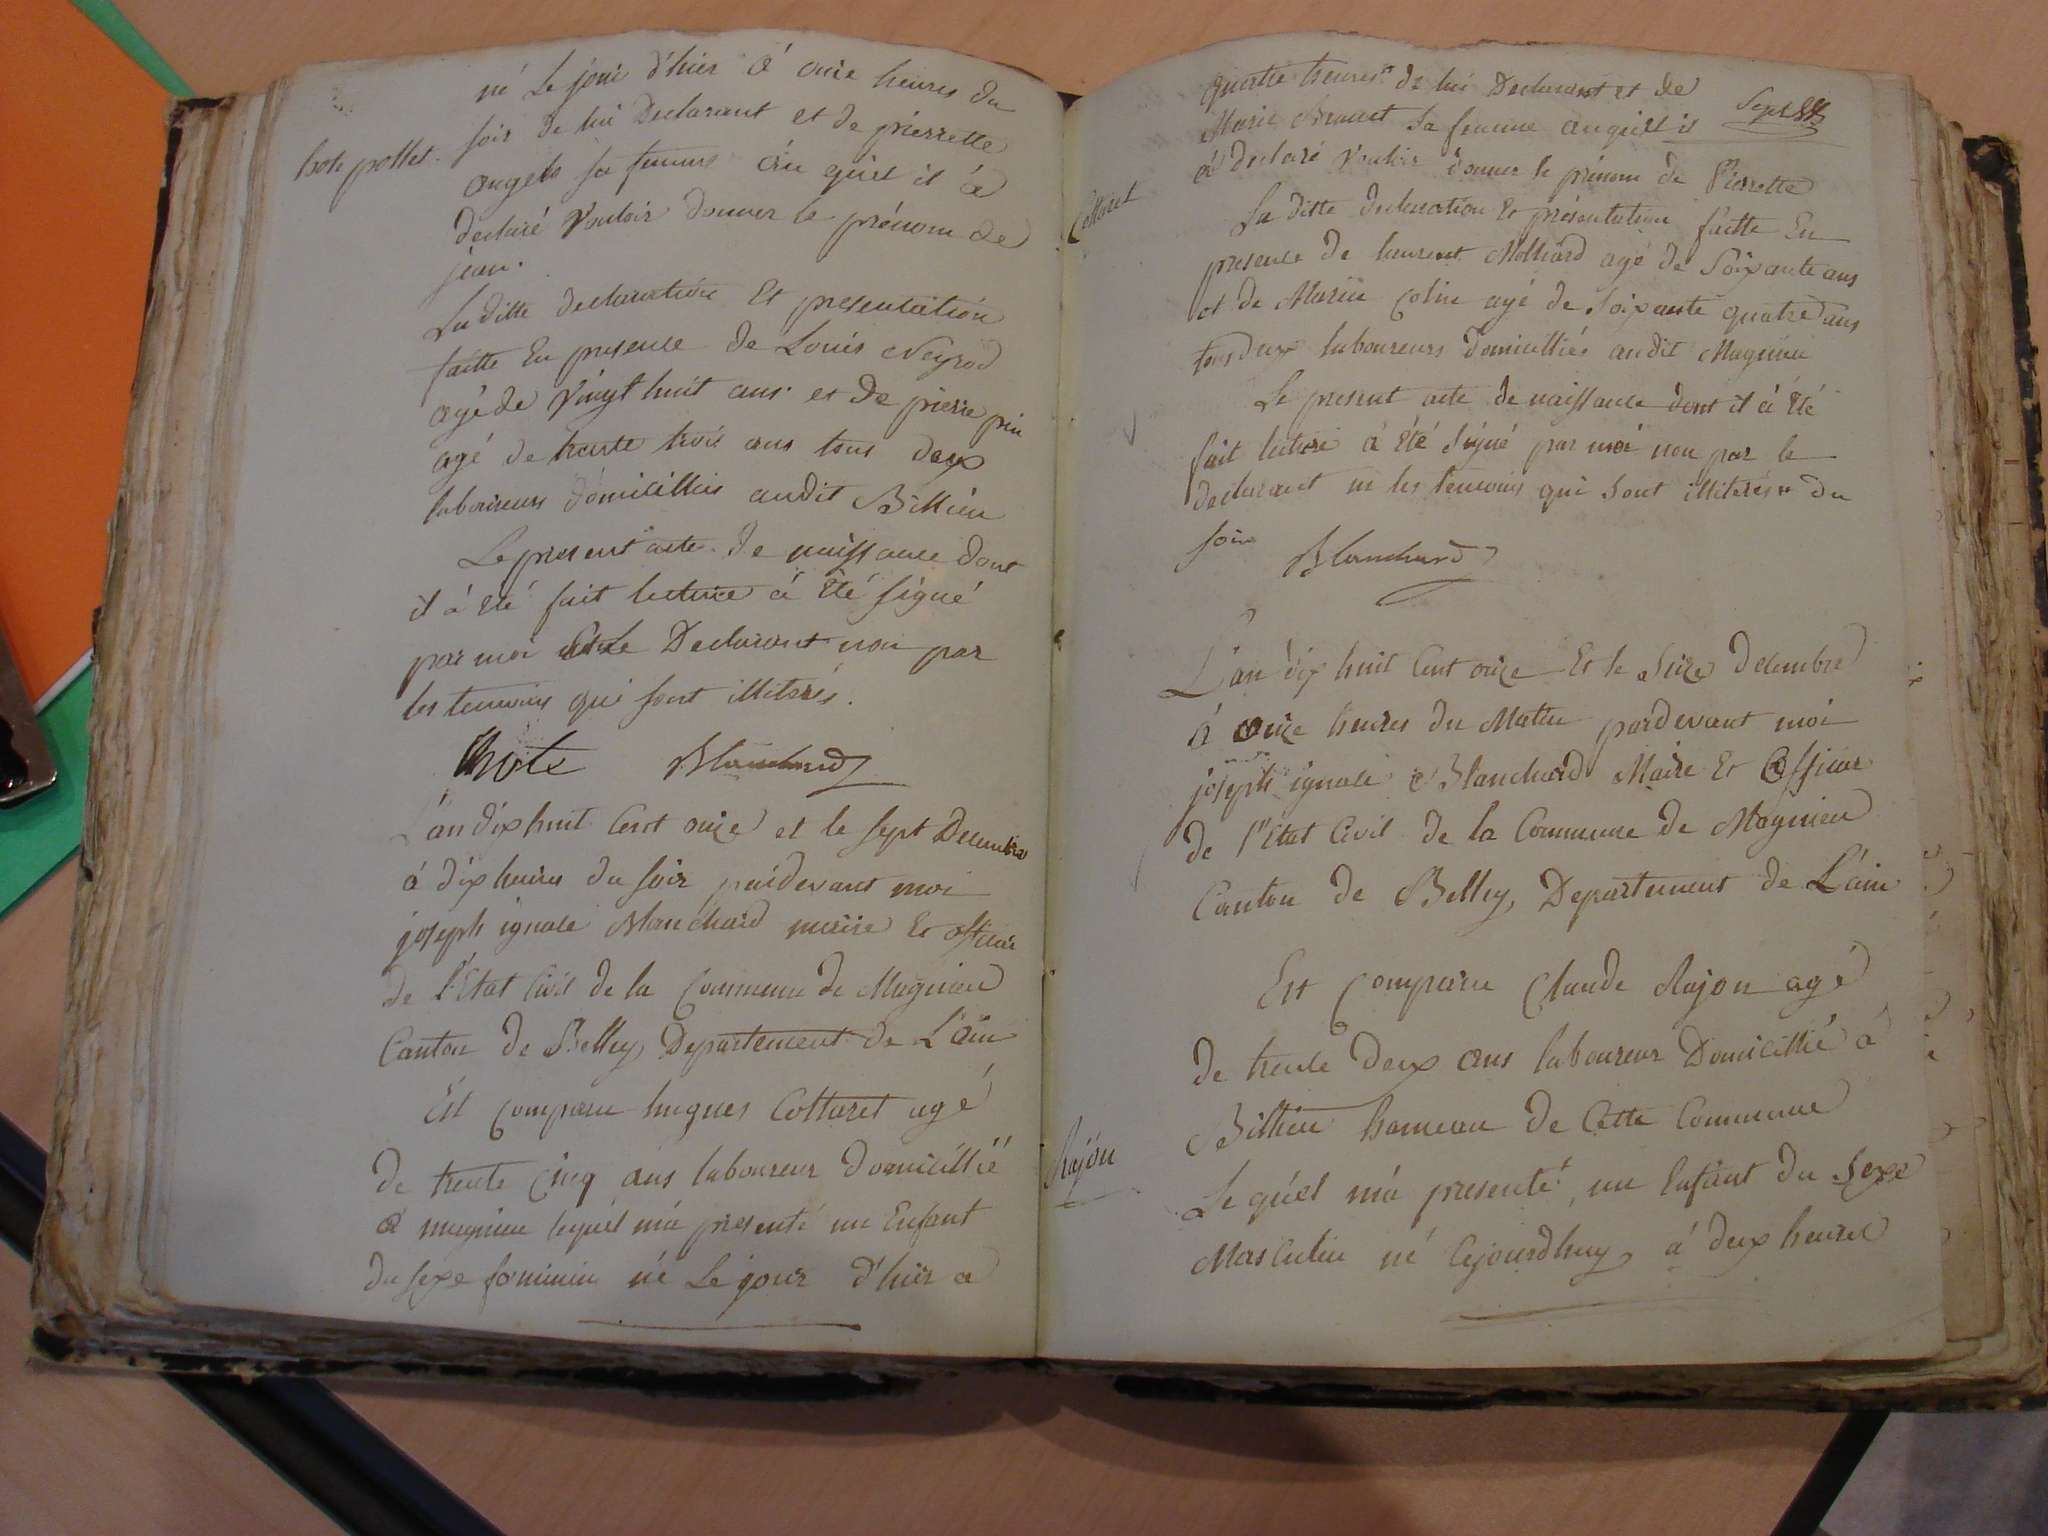 né Le jour d'hier à onze heures du
hote pollet.
soir de lui Declarant et de pierrette
sa femme au quel il à
declaré Vouloir donner le prénom de
jean.
La ditte declaration Et presentation
faitte En presence de Louis Neyrod
agé de Vingt huit ans et de pierre pin
agé de trente trois ans tous deux
laboureurs domicilliés audit Billieu
Le present acte de naissance dont
il à été fait lecture à été signé
par moi Et Le Declarant non par
les temoins qui sont illiterés.
hote Blanchard
L'an dix huit Cent onze et le sept Decembre
à dix heures du soir pardevant moi
joseph ignace Blanchard maire Et officier
de l'Etat Civil de la Commune de Magnieu
Canton de Belley, Departement de L'ain
Est comparu hugues Cottaret agé
de trente Cinq ans laboureur domicillié
à magnieu lequel m'a presenté un Enfant
du sexe feminin né Le jour d'hier a
quatre heures de lui Declarant et de
Marie sa femme auquel il
à declaré Vouloir donner le prénom de Pierrette
Cottaret
La ditte declaration Et présentation faitte En
presence de laurent Molliard agé de Soixante ans
et de Marin Colin agé de soixante quatre ans
tous deux laboureurs domicilliés audit Magnieu
Le present acte de naissance dont il à été
fait lecture à été signé par moi non par le
declarant ni les temoins qui sont illiterés du
soir Blanchard
L'an dix huit Cent onze Et le Seize Decembre
à onze heures du Matin pardevant moi
joseph ignace Blanchard Maire Et Officier
de l'Etat Civil de la Commune de Magnieu
Canton de Belley, Departement de L'ain
Est Comparu Claude Rajon agé
de trente deux ans laboureur Domicillié à
Billieu hameau de Cette Commune
Rajon
Le quel m'à presenté, un Enfant du Sexe
Masculin né Cejourdhuy à deux heures